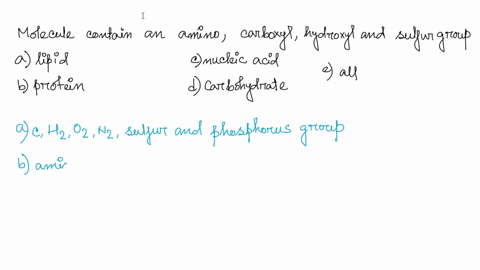 Molecule contain an amino, carboxyl, hydroxyl and sulfur group
a) lipid c) nucleic acid e) all
b) protein d) Carbohydrate
a) C, H2, O2, N2, sulfur and phosphorus group
b) ami